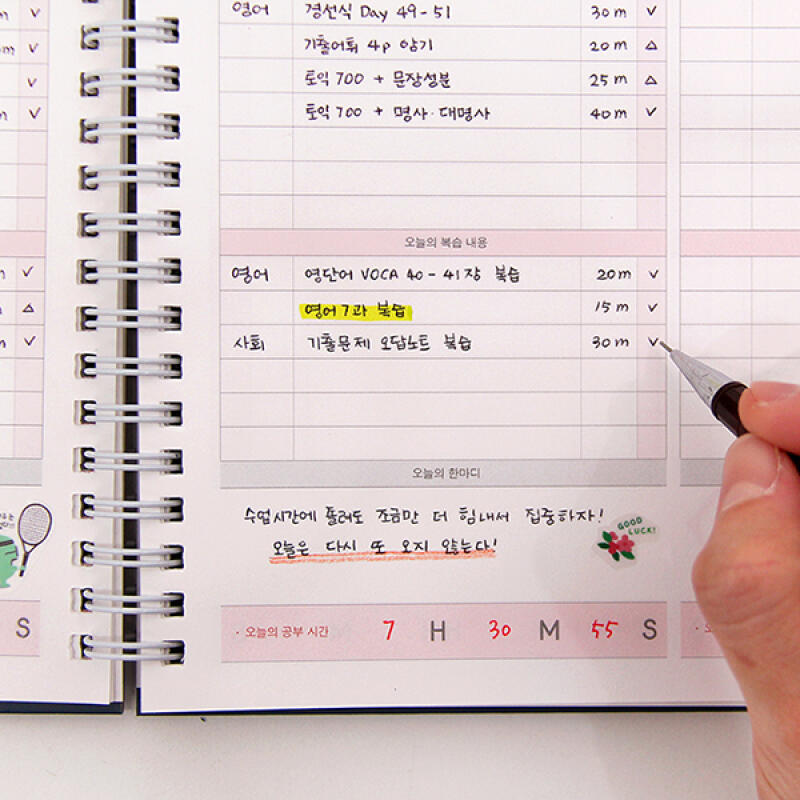 m ✓
영어 경선식 Day 49-51 30m ✓
m ✓
기출어휘 4p 암기 20m △
✓
토익 700 + 문장성분 25m △
m ✓
토익 700 + 명사·대명사 40m ✓
오늘의 복습 내용
✓
영어 영단어 VOCA 40-41장 복습 20m ✓
m △
영어 7과 복습 15m ✓
m ✓
사회 기출문제 오답노트 복습 30m ✓
오늘의 한마디
수업시간에 졸려도 조금만 더 힘내서 집중하자!
오늘은 다시 또 오지 않는다!
GOOD
LUCK!
S
· 오늘의 공부 시간 7 H 30 M 55 S